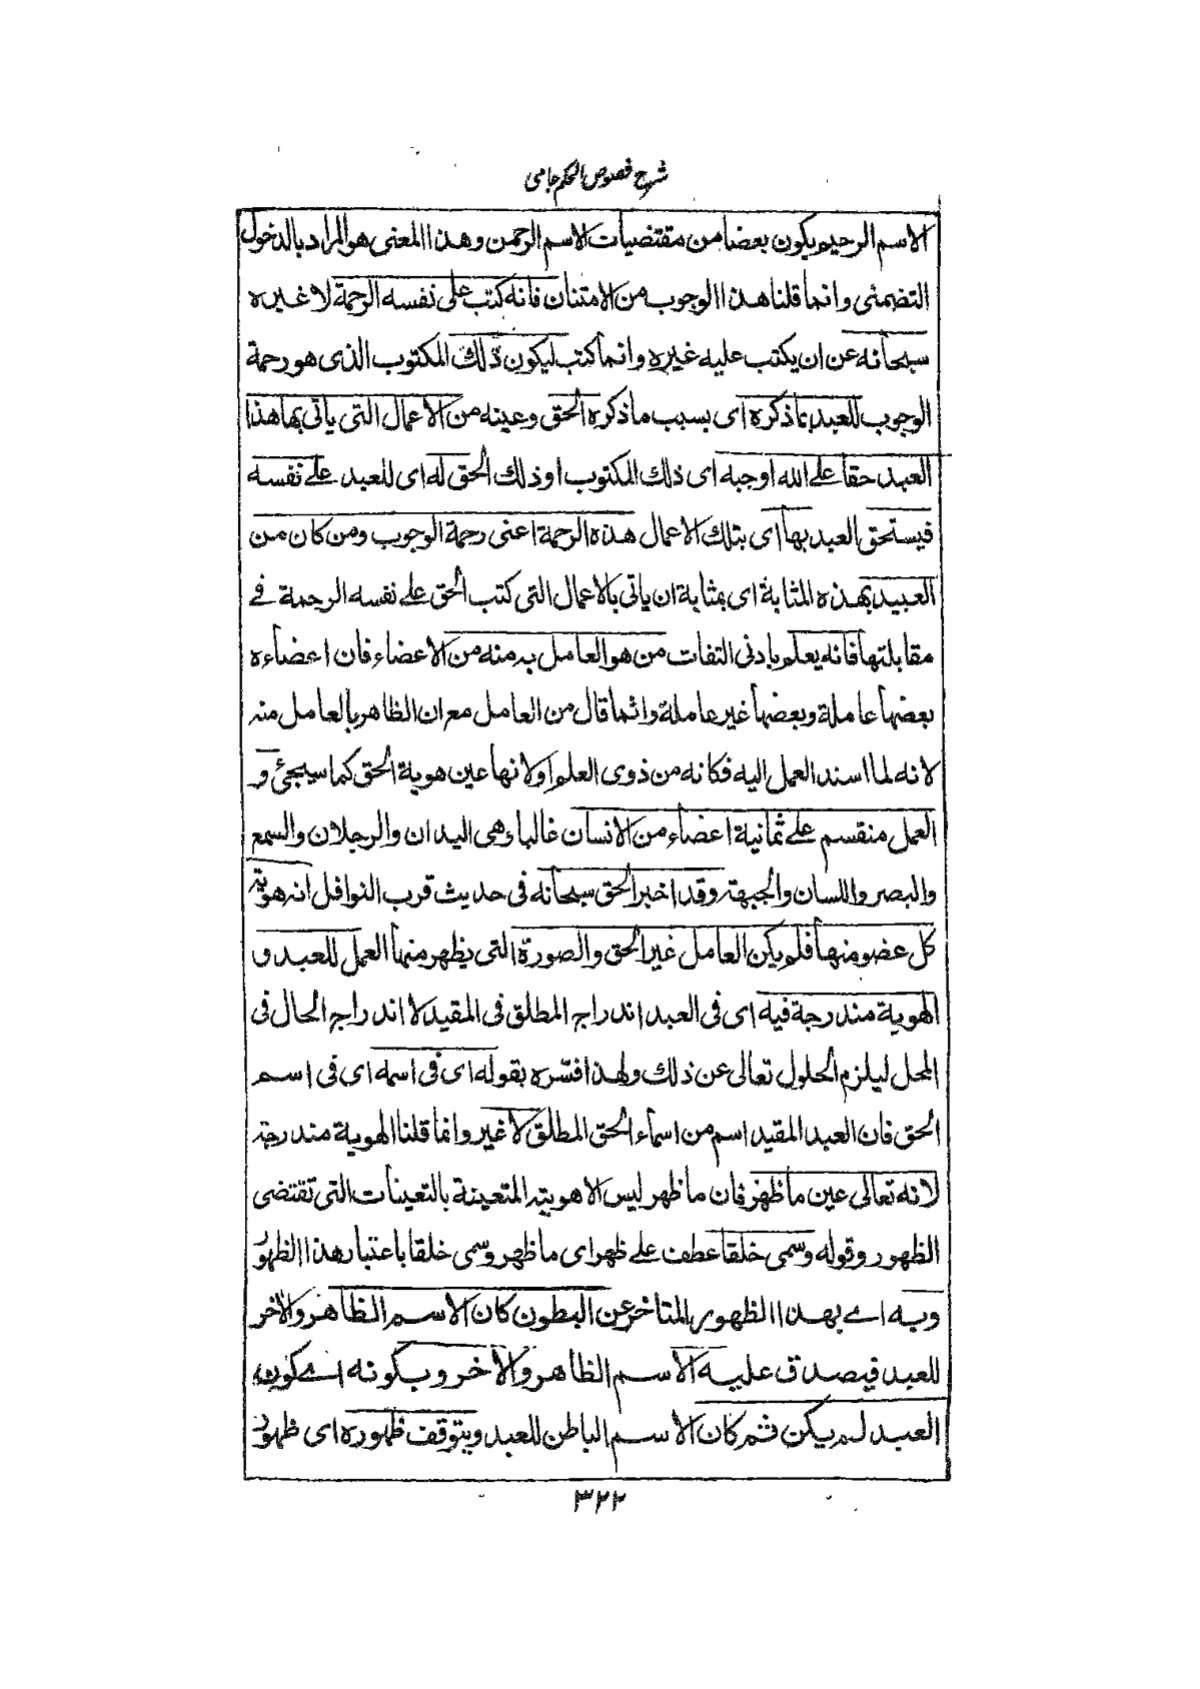 شرح فصوص الحكم جامى
الاسم الرحيم يكون بعضا من مقتضيات الاسم الرحمن وهذا المعنى هو المراد بالدخول
التضمنى وانما قلنا هذا الوجوب من الامتنان فانه كتب على نفسه الرحمة لا غيره
سبحانه عن ان يكتب عليه غيره وانما كتب ليكون ذلك المكتوب الذى هو رحمة
الوجوب للعبد بما ذكره اى بسبب ما ذكره الحق وعينه من الاعمال التى ياتى بها هذا
العبد حقا على الله اوجبه اى ذلك المكتوب او ذلك الحق له اى للعبد على نفسه
فيستحق العبد بها اى بتلك الاعمال هذه الرحمة اعنى رحمة الوجوب ومن كان من
العبيد بهذه المثابة اى بمثابة ان ياتى بالاعمال التى كتب الحق على نفسه الرحمة فے
مقابلتها فانه يعلم بادنى التفات من هو العامل به منه من الاعضاء فان اعضاءه
بعضها عاملة وبعضها غير عاملة وانما قال من العامل مع ان الظاهر بالعامل منه
لانه لما اسند العمل اليه فكانه من ذوى العلم او لانها عين هوية الحق كما سيجئ و
العمل منقسم على ثمانية اعضاء من الانسان غالباء وهى اليدان والرجلان والسمع
والبصر واللسان والجبهة وقد اخبر الحق سبحانه فى حديث قرب النوافل انه هوية
كل عضو منها فلم يكن العامل غير الحق والصورة التى يظهر منها العمل للعبد و
الهوية مندرجة فيه اى فى العبد اندراج المطلق فى المقيد لا اندراج الحال فى
المحل ليلزم الحلول تعالى عن ذلك ولهذا فسّره بقوله اى فى اسمه اى فى اسم
الحق فان العبد المقيد اسم من اسماء الحق المطلق لا غير وانما قلنا الهوية مندرجة
لانه تعالى عين ما ظهر فان ما ظهر ليس الا هويته المتعينة بالتعينات التى تقتضى
الظهور وقوله وسمى خلقا عطف على ظهر اى ما ظهر وسمى خلقا باعتبار هذا الظهور
وبه اے بهذا الظهور المتاخر عن البطون كان الاسم الظاهر والاخر
للعبد فيصدق عليه الاسم الظاهر والاخر وبكونه اے كون
العبد لم يكن ثم كان الاسم الباطن للعبد ويتوقف ظهوره اى ظهور
٣٢٢